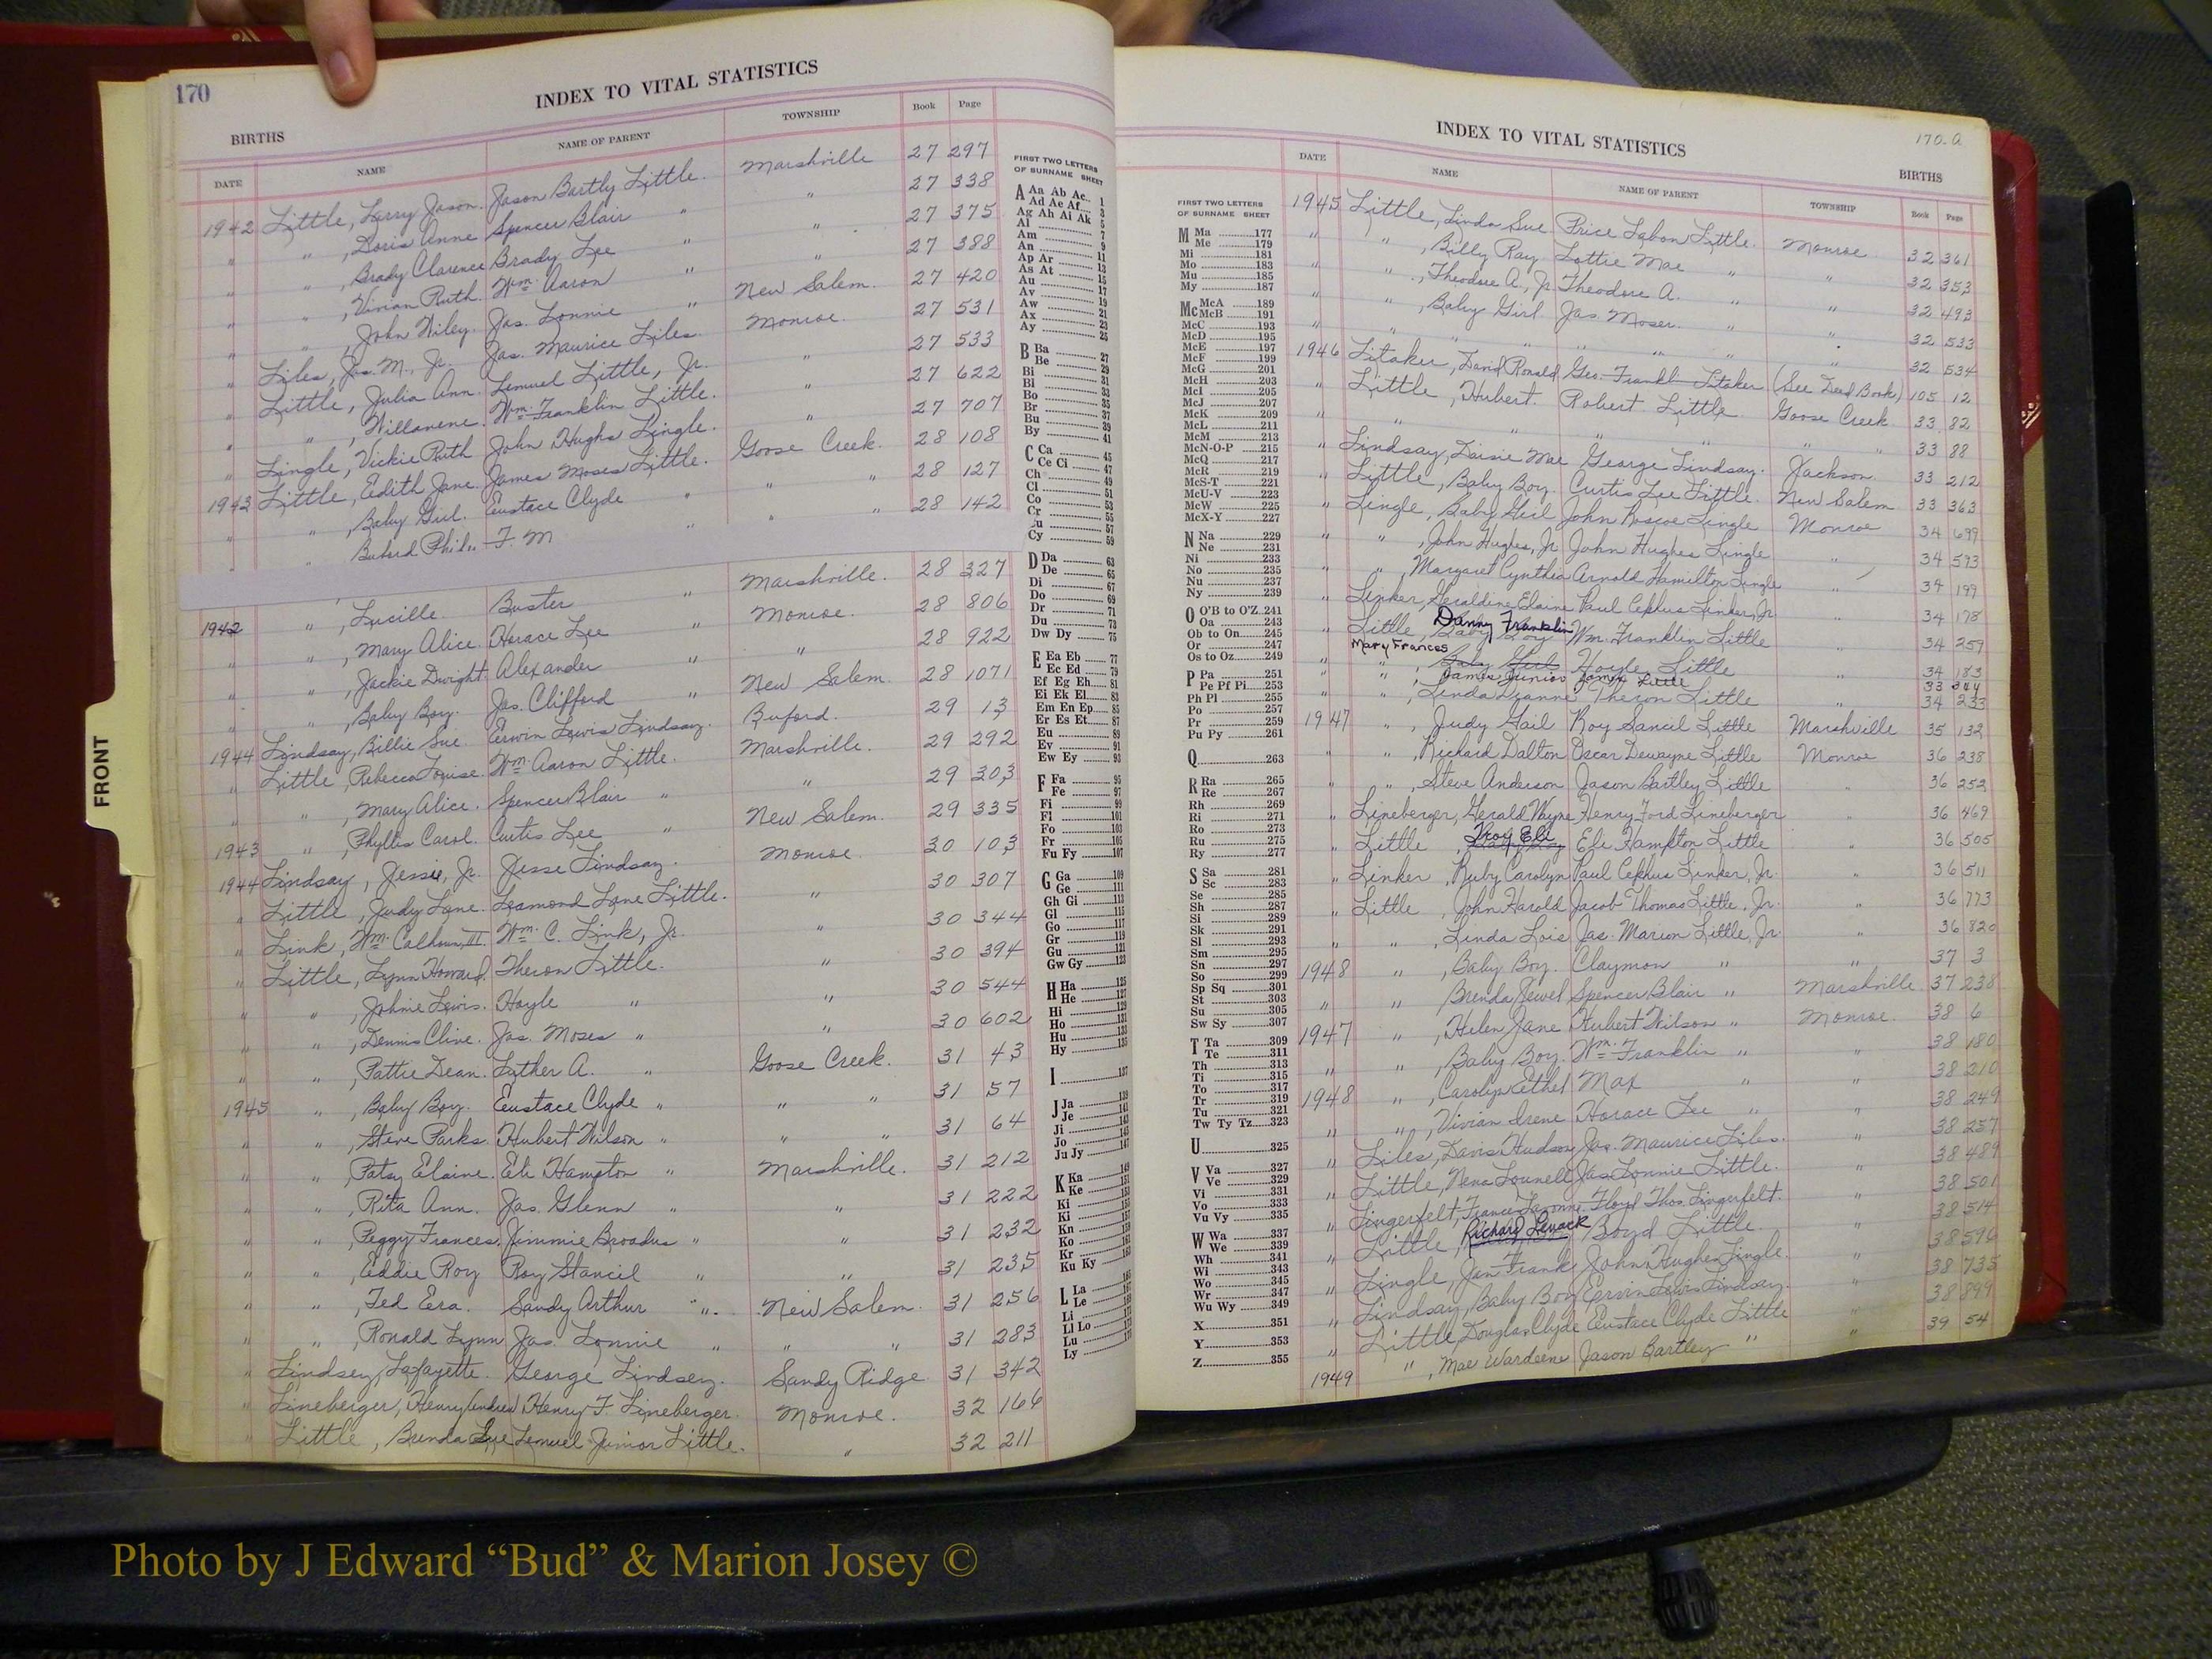 170
INDEX TO VITAL STATISTICS
BIRTHS
DATE NAME NAME OF PARENT TOWNSHIP Book Page
1942 Little, Larry Jason. Jason Bartly Little. Marshville 27 297
" " , Doris Anne Spencer Blair " " 27 338
" " , Brady Clarence Brady Lee " " 27 375
" " , Vivian Ruth. Wm. Aaron " " 27 388
" " , John Wiley. Jas. Lonnie " New Salem. 27 420
" Liles, Jas. M., Jr. Jas. Maurice Liles. Monroe. 27 531
" Little, Julia Ann. Lemuel Little, Jr. " 27 533
" " , Willanene. Wm. Franklin Little. " 27 622
" Lingle, Vickie Ruth John Hughs Lingle. " 27 707
1943 Little, Edith Jane. James Moses Little. Goose Creek. 28 108
" " , Baby Girl. Eustace Clyde " " " 28 127
" Buford Phil.. F. M " " " 28 142
1942 " , Lucille. Buster " Marshville. 28 327
" " , Mary Alice. Horace Lee " Monroe. 28 806
" " , Jackie Dwight. Alexander " " 28 922
" " , Baby Boy. Jas. Clifford " New Salem. 28 1071
1944 Lindsay, Billie Sue. Erwin Lewis Lindsay. Buford. 29 13
" Little, Rebecca Louise. Wm. Aaron Little. Marshville. 29 292
" " , Mary Alice. Spencer Blair " " 29 303
1943 " , Phyllis Carol. Curtis Lee " New Salem. 29 335
1944 Lindsay, Jessie, Jr. Jesse Lindsay. Monroe. 30 103
" Little, Judy Lane. Leamond Lane Little. " 30 307
" Link, Wm. Calhoun, III. Wm. C. Link, Jr. " 30 344
" Little, Lynn Howard. Theron Little. " 30 394
" " , Johnie Lewis. Hoyle " " 30 544
" " , Dennis Clive. Jas. Moses " " 30 602
" " , Pattie Dean. Luther A. " Goose Creek. 31 43
1945 " , Baby Boy. Eustace Clyde " " " 31 57
" " , Steve Parks. Hubert Wilson " " " 31 64
" " , Patsy Elaine. Eli Hampton " Marshville. 31 212
" " , Rita Ann. Jas. Glenn " " 31 222
" " , Peggy Frances. Jimmie Broadus " " 31 232
" " , Eddie Roy Roy Stancil " " 31 235
" " , Ted Ezra. Sandy Arthur " New Salem. 31 256
" " , Ronald Lynn Jas. Lonnie " " " 31 283
" Lindsey, Lafayette. George Lindsey. Sandy Ridge. 31 342
" Lineberger, Henry Henry F. Lineberger. Monroe. 32 166
" Little, Brenda Sue Lemuel Junior Little. " 32 211
FIRST TWO LETTERS
OF SURNAME SHEET
A Aa Ab Ac 1
Ad Ae Af 3
Ag Ah Ai Ak 5
Al 7
Am 9
An 11
Ap Ar 13
As At 15
Au 17
Av 19
Aw 21
Ax 23
Ay 25
B Ba 27
Be 29
Bi 31
Bl 33
Bo 35
Br 37
Bu 39
By 41
C Ca 45
Ce Ci 47
Ch 49
Cl 51
Co 53
Cr 55
Cu 57
Cy 59
D Da 63
De 65
Di 67
Do 69
Dr 71
Du 73
Dw Dy 75
E Ea Eb 77
Ec Ed 79
Ef Eg Eh 81
Ei Ek El 83
Em En Ep 85
Er Es Et 87
Eu 89
Ev 91
Ew Ey 93
F Fa 95
Fe 97
Fi 99
Fl 101
Fo 103
Fr 105
Fu Fy 107
G Ga 109
Ge 111
Gh Gi 113
Gl 115
Go 117
Gr 119
Gu 121
Gw Gy 123
H Ha 125
He 127
Hi 129
Ho 131
Hu 133
Hy 135
I 137
J Ja 139
Je 141
Ji 143
Jo 145
Ju Jy 147
K Ka 149
Ke 151
Ki
Kn
Ko
Kr
Ku Ky
L La
Le
Li
Ll Lo
Lu
Ly
FRONT
170-a
INDEX TO VITAL STATISTICS
BIRTHS
DATE NAME NAME OF PARENT TOWNSHIP Book Page
FIRST TWO LETTERS
OF SURNAME SHEET
M Ma 177
Me 179
Mi 181
Mo 183
Mu 185
My 187
Mc McA 189
McB 191
McC 193
McD 195
McE 197
McF 199
McG 201
McH 203
McI 205
McJ 207
McK 209
McL 211
McM 213
McN-O-P 215
McQ 217
McR 219
McS-T 221
McU-V 223
McW 225
McX-Y 227
N Na 229
Ne 231
Ni 233
No 235
Nu 237
Ny 239
O O'B to O'Z 241
Oa 243
Ob to On 245
Or 247
Os to Oz 249
P Pa 251
Pe Pf Pi 253
Ph Pl 255
Po 257
Pr 259
Pu Py 261
Q 263
R Ra 265
Re 267
Rh 269
Ri 271
Ro 273
Ru 275
Ry 277
S Sa 281
Sc 283
Se 285
Sh 287
Si 289
Sk 291
Sl 293
Sm 295
Sn 297
So 299
Sp Sq 301
St 303
Su 305
Sw Sy 307
T Ta 309
Te 311
Th 313
Ti 315
To 317
Tr 319
Tu 321
Tw Ty Tz 323
U 325
V Va 327
Ve 329
Vi 331
Vo 333
Vu Vy 335
W Wa 337
We 339
Wh 341
Wi 343
Wo 345
Wr 347
Wu Wy 349
X 351
Y 353
Z 355
1945 Little, Linda Sue Price Labon Little. Monroe 32 361
" " , Billy Ray Lottie Mae " " 32 353
" " , Theodore A., Jr. Theodore A. " " 32 493
" " , Baby Girl Jas. Moser. " " 32 533
" " " " " " " 32 534
1946 Litaker, David Ronald Geo. Frankl Litaker (See Deed Book) 105 12
" Little, Hubert. Robert Little Goose Creek 33 82
" " " " " " " 33 88
" Lindsay, Daisie Mae George Lindsay. Jackson. 33 212
" Little, Baby Boy. Curtis Lee Little. New Salem 33 363
" Lingle, Baby Girl John Roscoe Lingle Monroe 34 699
" " , John Hughes, Jr. John Hughes Lingle " 34 593
" " , Margaret Cynthia Arnold Hamilton Lingle " 34 199
" Linker, Geraldine Elaine Paul Cephus Linker, Jr. " 34 178
" Little, Baby Boy Danny Franklin Wm. Franklin Little " 34 259
Mary Frances
" " , Baby Girl Hoyle Little " 34 183
James Junior James Little 33 344
" " , Linda Dianne Theron Little " 34 233
1947 " , Judy Gail Roy Sancil Little Marshville 35 132
" " , Richard Dalton Oscar Dewayne Little Monroe 36 238
" " , Steve Anderson Jason Bartley Little " 36 252
" Lineberger, Gerald Wayne Henry Ford Lineberger " 36 469
" Little, Troy Eli Eli Hampton Little " 36 505
" Linker, Ruby Carolyn Paul Cephus Linker, Jr. " 36 511
" Little, John Harold Jacob Thomas Little, Jr. " 36 773
" " , Linda Lois Jas. Marion Little, Jr. " 36 820
1948 " , Baby Boy. Claymon " " 37 3
" " Brenda Jewel Spencer Blair " Marshville 37 238
1947 " , Helen Jane Hubert Wilson " Monroe. 38 6
" " , Baby Boy. Wm. Franklin " " 38 180
1948 " , Carolyn Ethel Max " " 38 210
" " , Vivian Irene Horace Lee " " 38 249
" Liles, Davis Hudson Jas. Maurice Liles. " 38 257
" Little, Nena Lounell Jas Lonnie Little. " 38 489
" Lingerfelt, Floyd Thos. Lingerfelt. " 38 501
" Little, Richard Boyd Little. " 38 514
" Lingle, Jan Frank John Hughes Lingle. " 38 596
" Lindsay, Baby Boy Ervin Lewis Lindsay. " 38 735
" Little, Douglas Clyde Eustace Clyde Little " 38 899
1949 " , Mae Wardeene Jason Bartley " " 39 54
Photo by J Edward “Bud” & Marion Josey ©